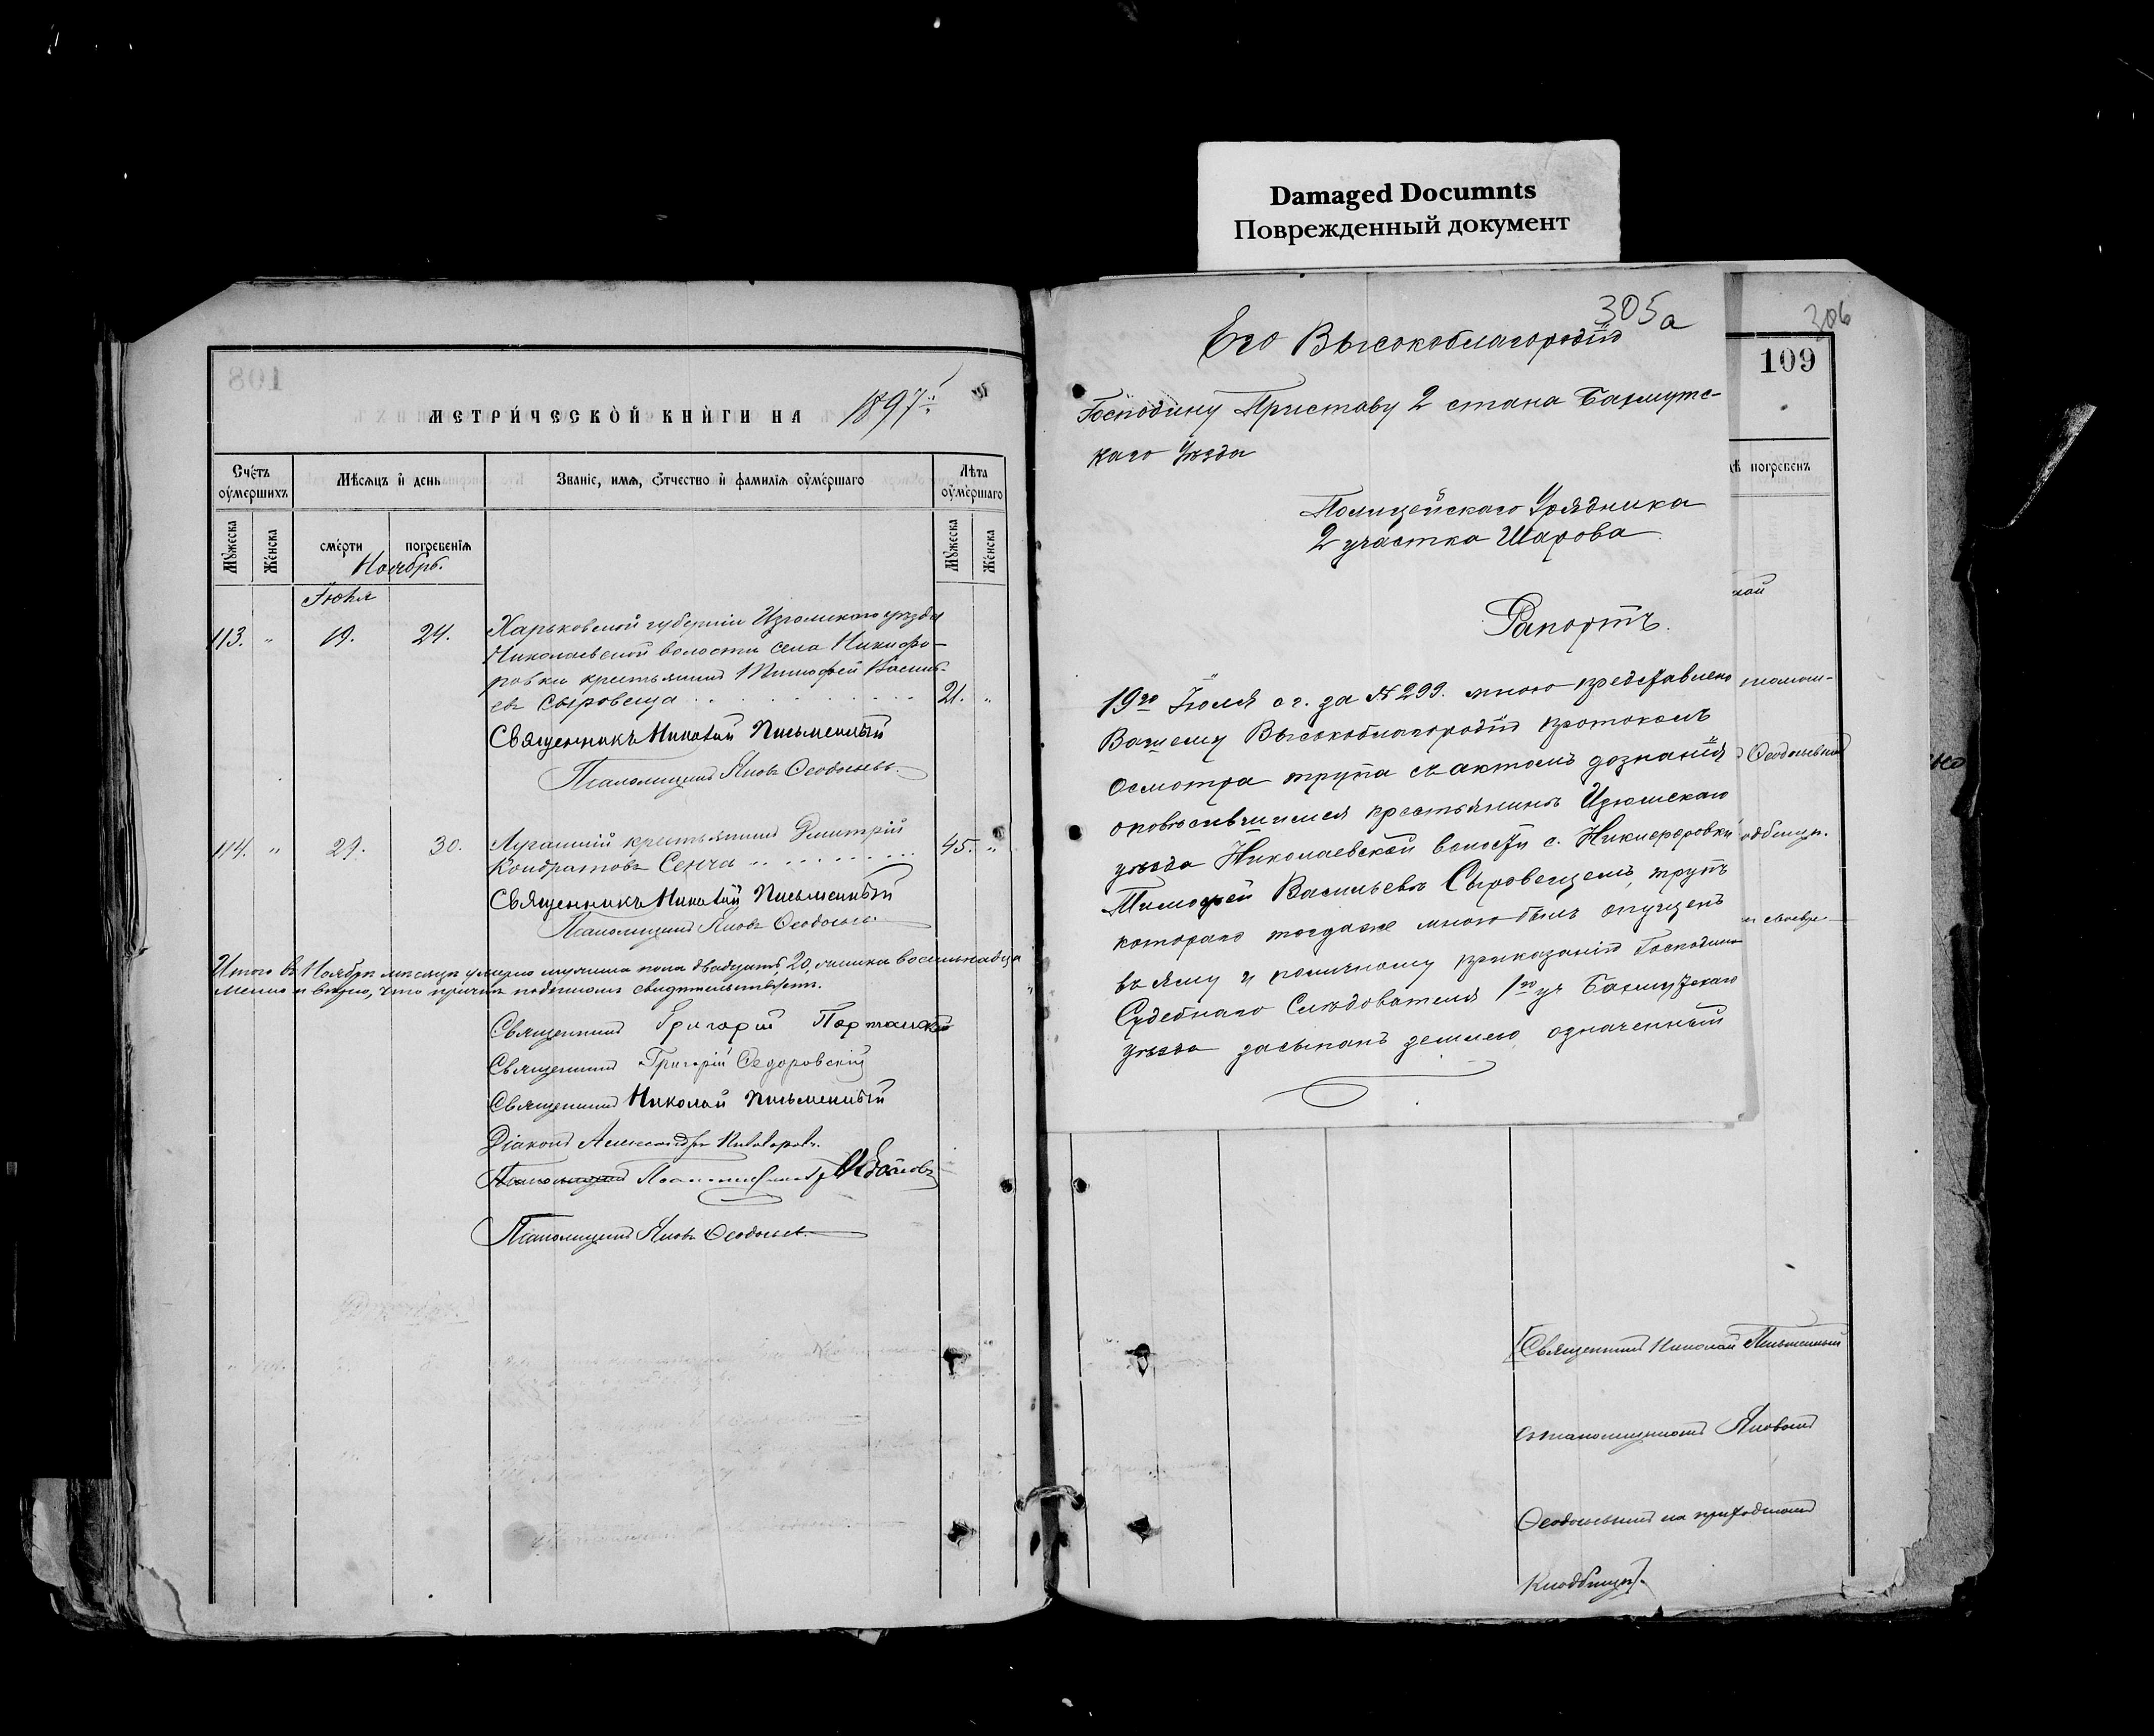 Damaged Documnts
Поврежденный документ
108
МЕТРИ́ЧЕСКОЙ КНИ́ГИ НА 1897 г.
Счетъ оумершихъ
Мѣсяцъ и день
Званіе, имя, отчество и фамилія оумершаго
Лѣта оумершаго
Мужеска
Женска
смерти
погребенія
Мужеска
Женска
Ноябрь.
Іюля
113. " 19. 24. Харьковской губерніи Изюмскаго уѣзда
Николаевской волости села Никифо-
ровки крестьянинъ Тимофей Василь-
евъ Сыровецъ 21. "
Священникъ Николай Письменный
Псаломщикъ Яковъ Ѳеодосьевъ
114. " 29. 30. крестьянинъ Дмитрій
Кондратовъ Сенча 45. "
Священникъ Николай Письменный
Псаломщикъ Яковъ Ѳеодосьевъ
Итого въ Ноябрѣ мѣсяцѣ умерло мужеска пола двадцать, 20, женска восемнадца
что причтъ подписомъ свидѣтельствуетъ.
Священникъ Григорій
Священникъ Григорій Ѳедоровскій
Священникъ Николай Письменный
Діаконъ Александръ
Псаломщикъ
Псаломщикъ Яковъ Ѳеодосьевъ
305а
Его Высокоблагородію
Господину Приставу 2 стана Бахмутс-
каго Уѣзда
Полицейскаго Урядника
2 участка Шарова
Рапортъ.
19го Іюля с г. за № 299. мною представлено
Вашему Высокоблагородію протоколъ
осмотра трупа съ актомъ дознанія
о повѣсившимся крестьянинѣ Изюмскаго
уѣзда Николаевской волости с. Никифоровки
Тимофей Васильевъ Сыровецемъ, трупъ
котораго тогда же мною былъ опущенъ
въ яму и по личному приказанію Господина
Судебнаго Слѣдователя 1го уч Бахмутскаго
уѣзда засыпанъ землею означенный
306
109
дѣ погребенъ
Священникъ Николай Письменный
съ псаломщикомъ Яковомъ
Ѳеодосьевымъ на приходскомъ
Кладбищѣ.